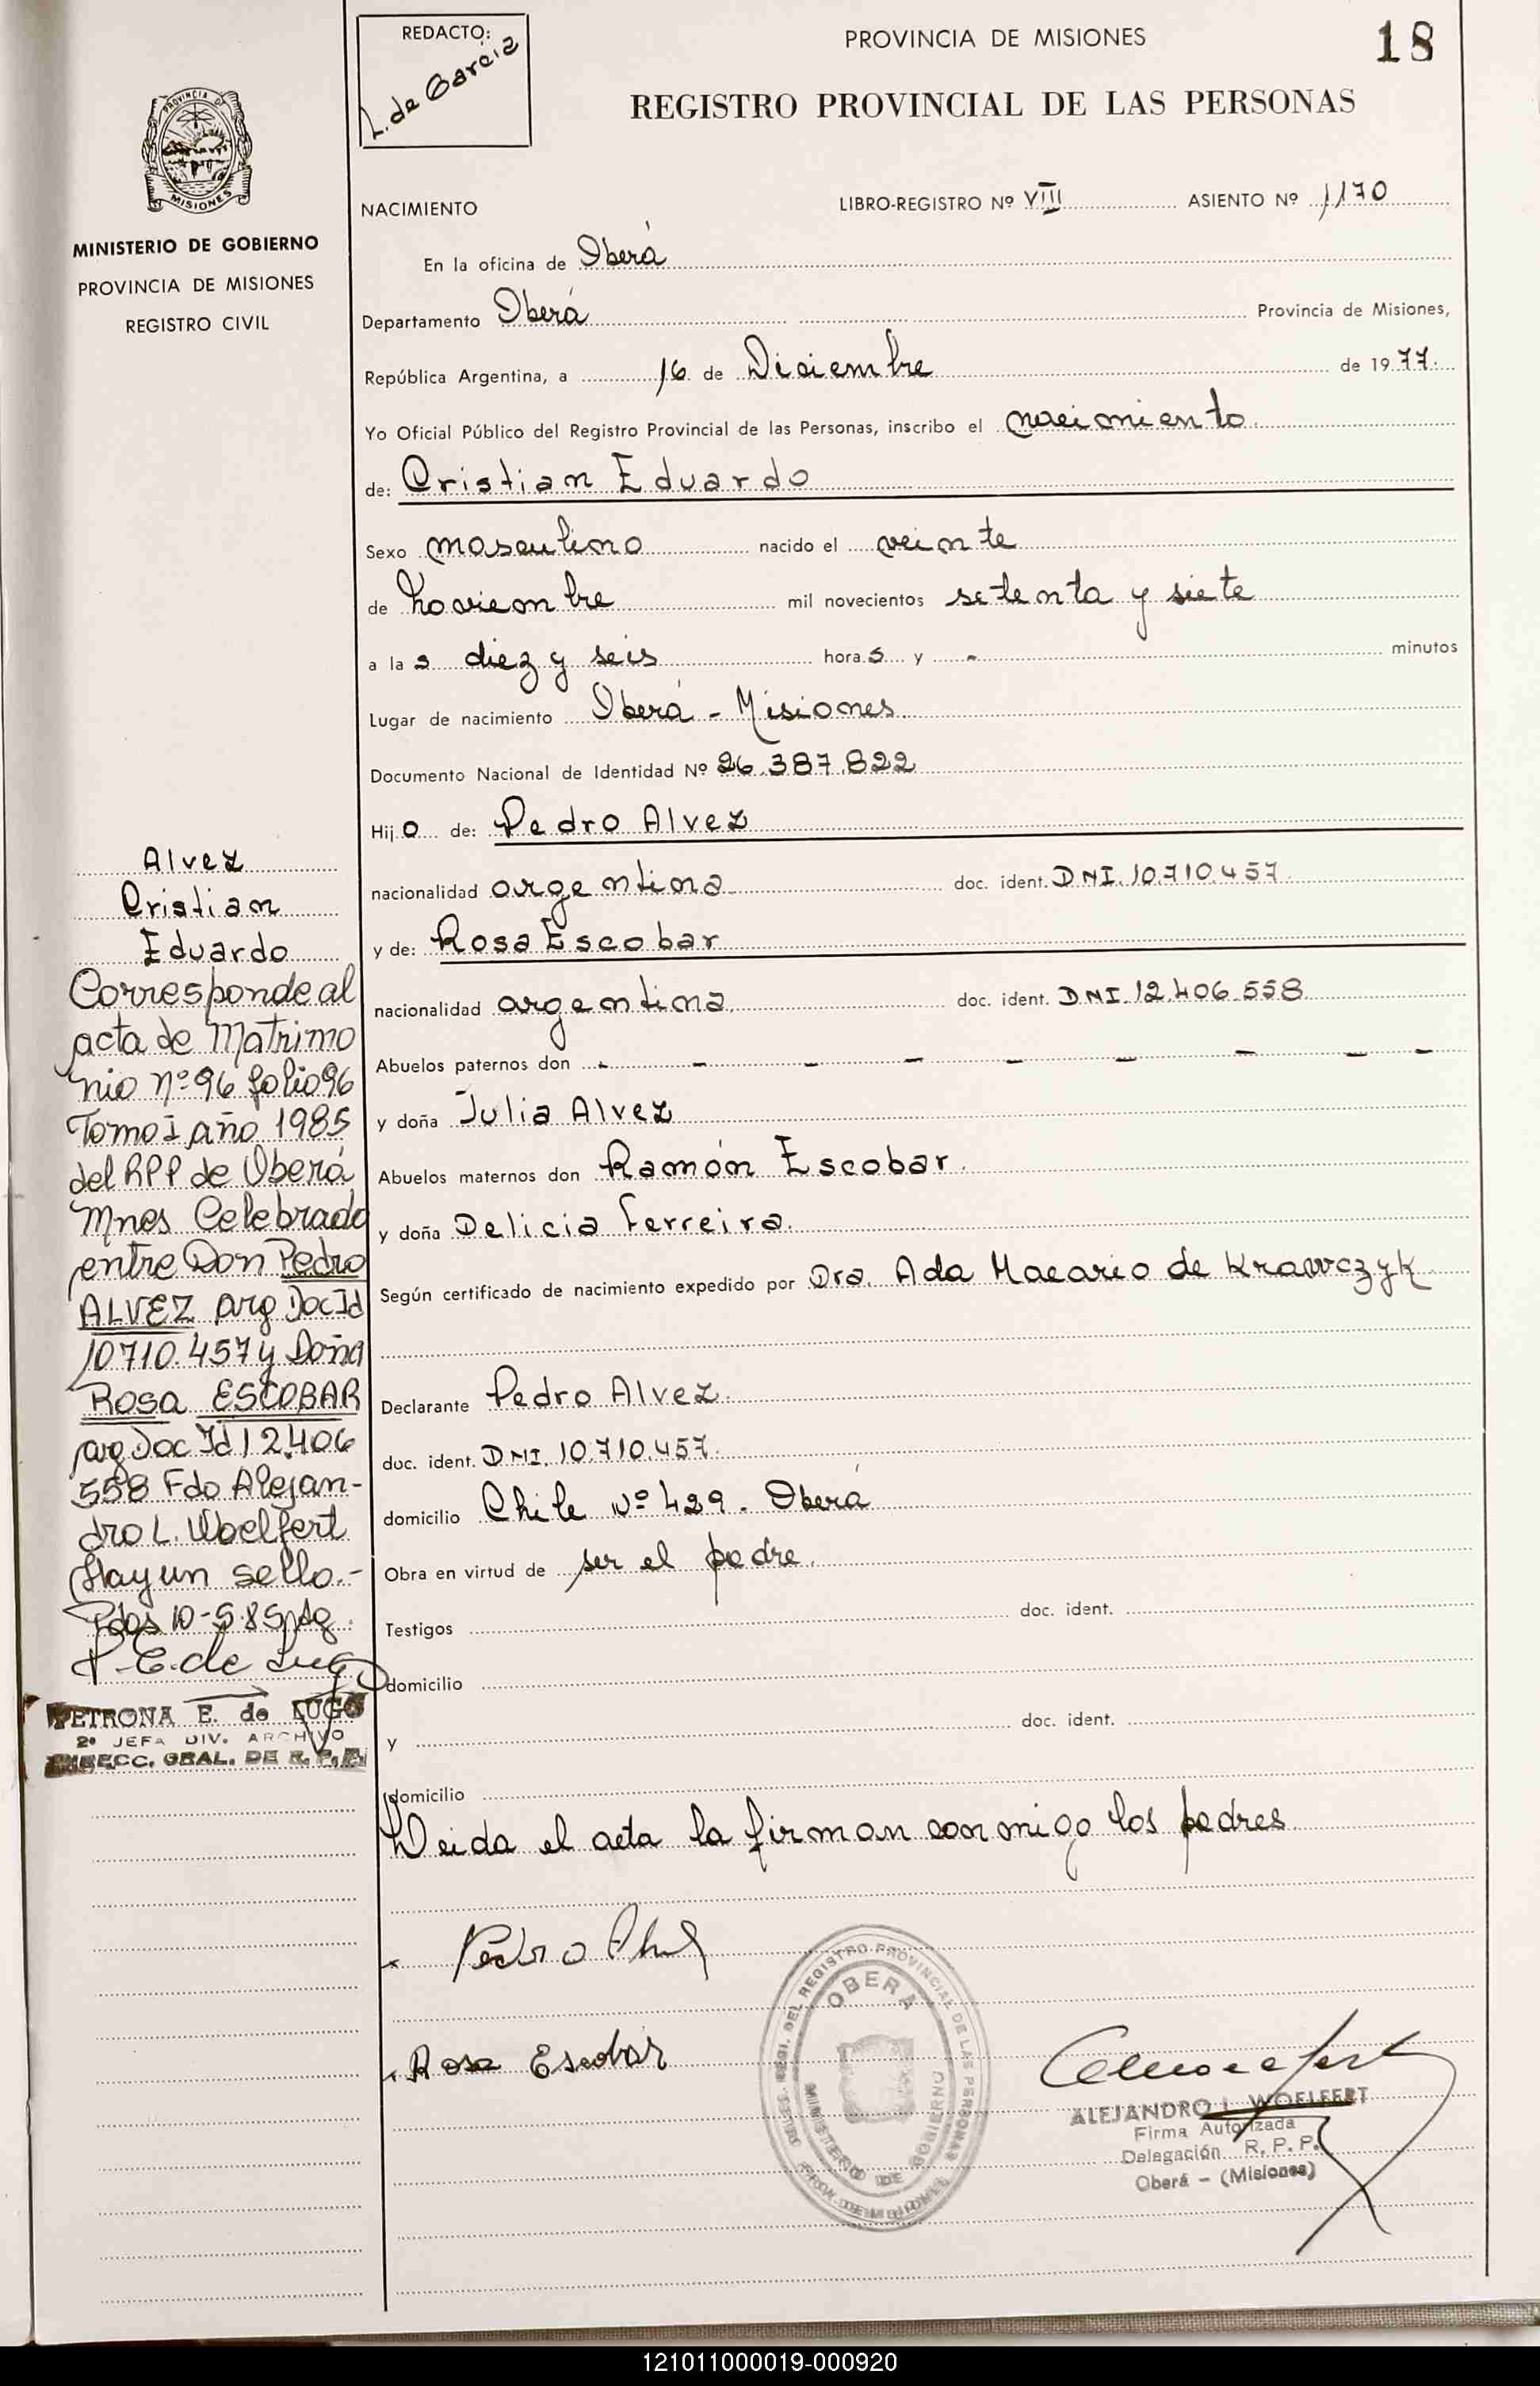 REDACTÓ:
L. de García
PROVINCIA DE MISIONES
18
REGISTRO PROVINCIAL DE LAS PERSONAS
PROVINCIA D
MISIONES
MINISTERIO DE GOBIERNO
PROVINCIA DE MISIONES
REGISTRO CIVIL
NACIMIENTO
LIBRO-REGISTRO Nº VIII ASIENTO Nº 1170
En la oficina de Oberá
Departamento Oberá Provincia de Misiones,
República Argentina, a 16 de Diciembre de 1977.
Yo Oficial Público del Registro Provincial de las Personas, inscribo el nacimiento
de: Cristian Eduardo
Sexo masculino nacido el veinte
de Noviembre mil novecientos setenta y siete
a las diez y seis horas y - minutos
Lugar de nacimiento Oberá - Misiones.
Documento Nacional de Identidad Nº 26.387.822
Hijo de: Pedro Alvez
nacionalidad argentina doc. ident. DNI. 10.710.457.
y de: Rosa Escobar
nacionalidad argentina. doc. ident. DNI. 12.406.558
Abuelos paternos don - - - - - - - - -
y doña Julia Alvez
Abuelos maternos don Ramón Escobar.
y doña Delicia Ferreira.
Según certificado de nacimiento expedido por Dra. Ada Macario de Krawczyk.
Declarante Pedro Alvez.
doc. ident. DNI. 10.710.457.
domicilio Chile Nº 429. Oberá
Obra en virtud de ser el padre.
Testigos doc. ident.
domicilio
y doc. ident.
domicilio
Leida el acta la firman conmigo los padres
Pedro Alvez
Rosa Escobar
Alvez
Cristian
Eduardo
Corresponde al
acta de Matrimo
nio Nº 96 folio 96
Tomo I año 1985
del RPP de Oberá
Mnes Celebrado
entre Don Pedro
ALVEZ arg Doc Id
10710.457 y Doña
Rosa ESCOBAR
arg Doc Id 12.406
558 Fdo Alejan-
dro L. Woelfert
Hay un sello.-
Pdas 10-5-85
P. E. de Lugo
PETRONA E. de LUGO
2ª JEFA DIV. ARCHIVO
DIRECC. GRAL. DE R. P. P.
REGI. DEL REGISTRO PROVINCIAL DE LAS PERSONAS
OBERA
MINISTERIO DE GOBIERNO
ALEJANDRO L. WOELFERT
Firma Autorizada
Delegación R. P. P.
Oberá - (Misiones)
121011000019-000920